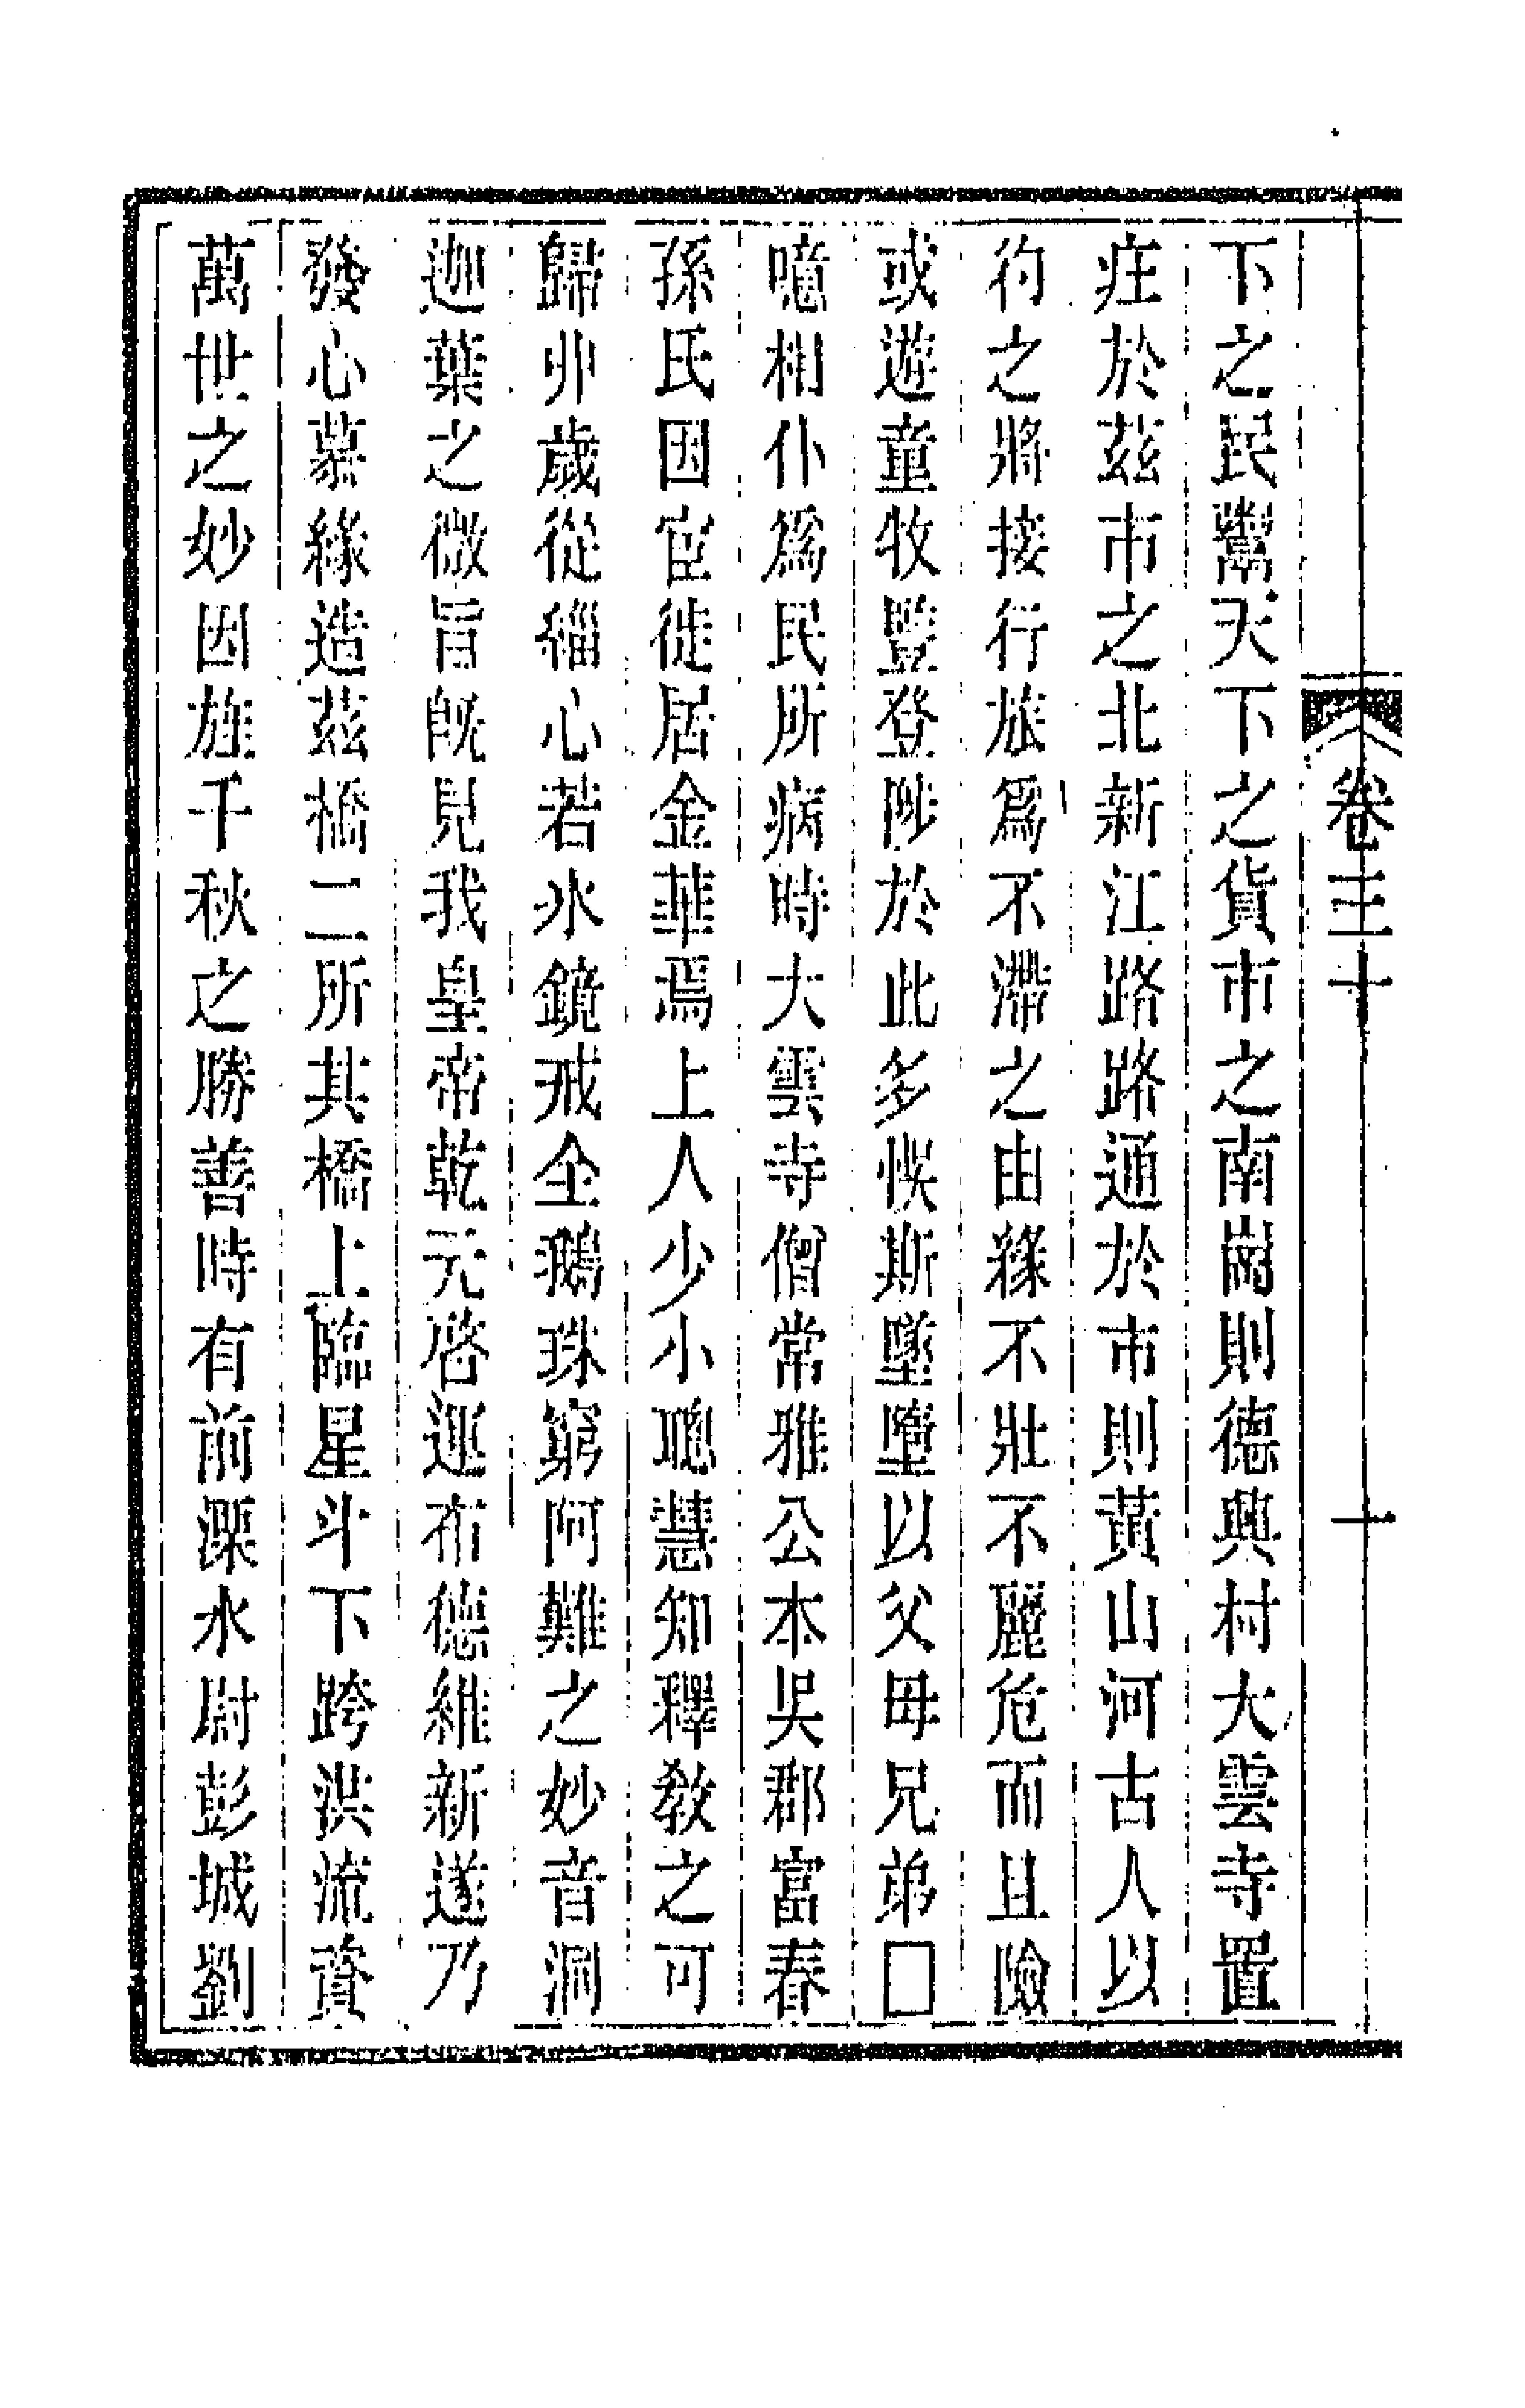 卷三十
一
下之民鬻天下之貨市之南崗則德興村大雲寺置
庄於茲市之北新江路路通於市則黃山河古人以
彴之將接行旅爲不滯之由緣不壯不麗危而且險
或遊童牧豎登陟於此多悞斯墜墮以父母兄弟□
噫相仆爲民所病時大雲寺僧常雅公本吳郡富春
孫氏因宦徙居金華焉上人少小聰慧知釋教之可
歸丱歲從緇心若水鏡戒全鵝珠窮阿難之妙音洞
迦葉之微旨旣見我皇帝乾元啓運布德維新遂乃
發心慕緣造茲橋二所其橋上臨星斗下跨洪流資
萬世之妙因旌千秋之勝善時有前溧水尉彭城劉